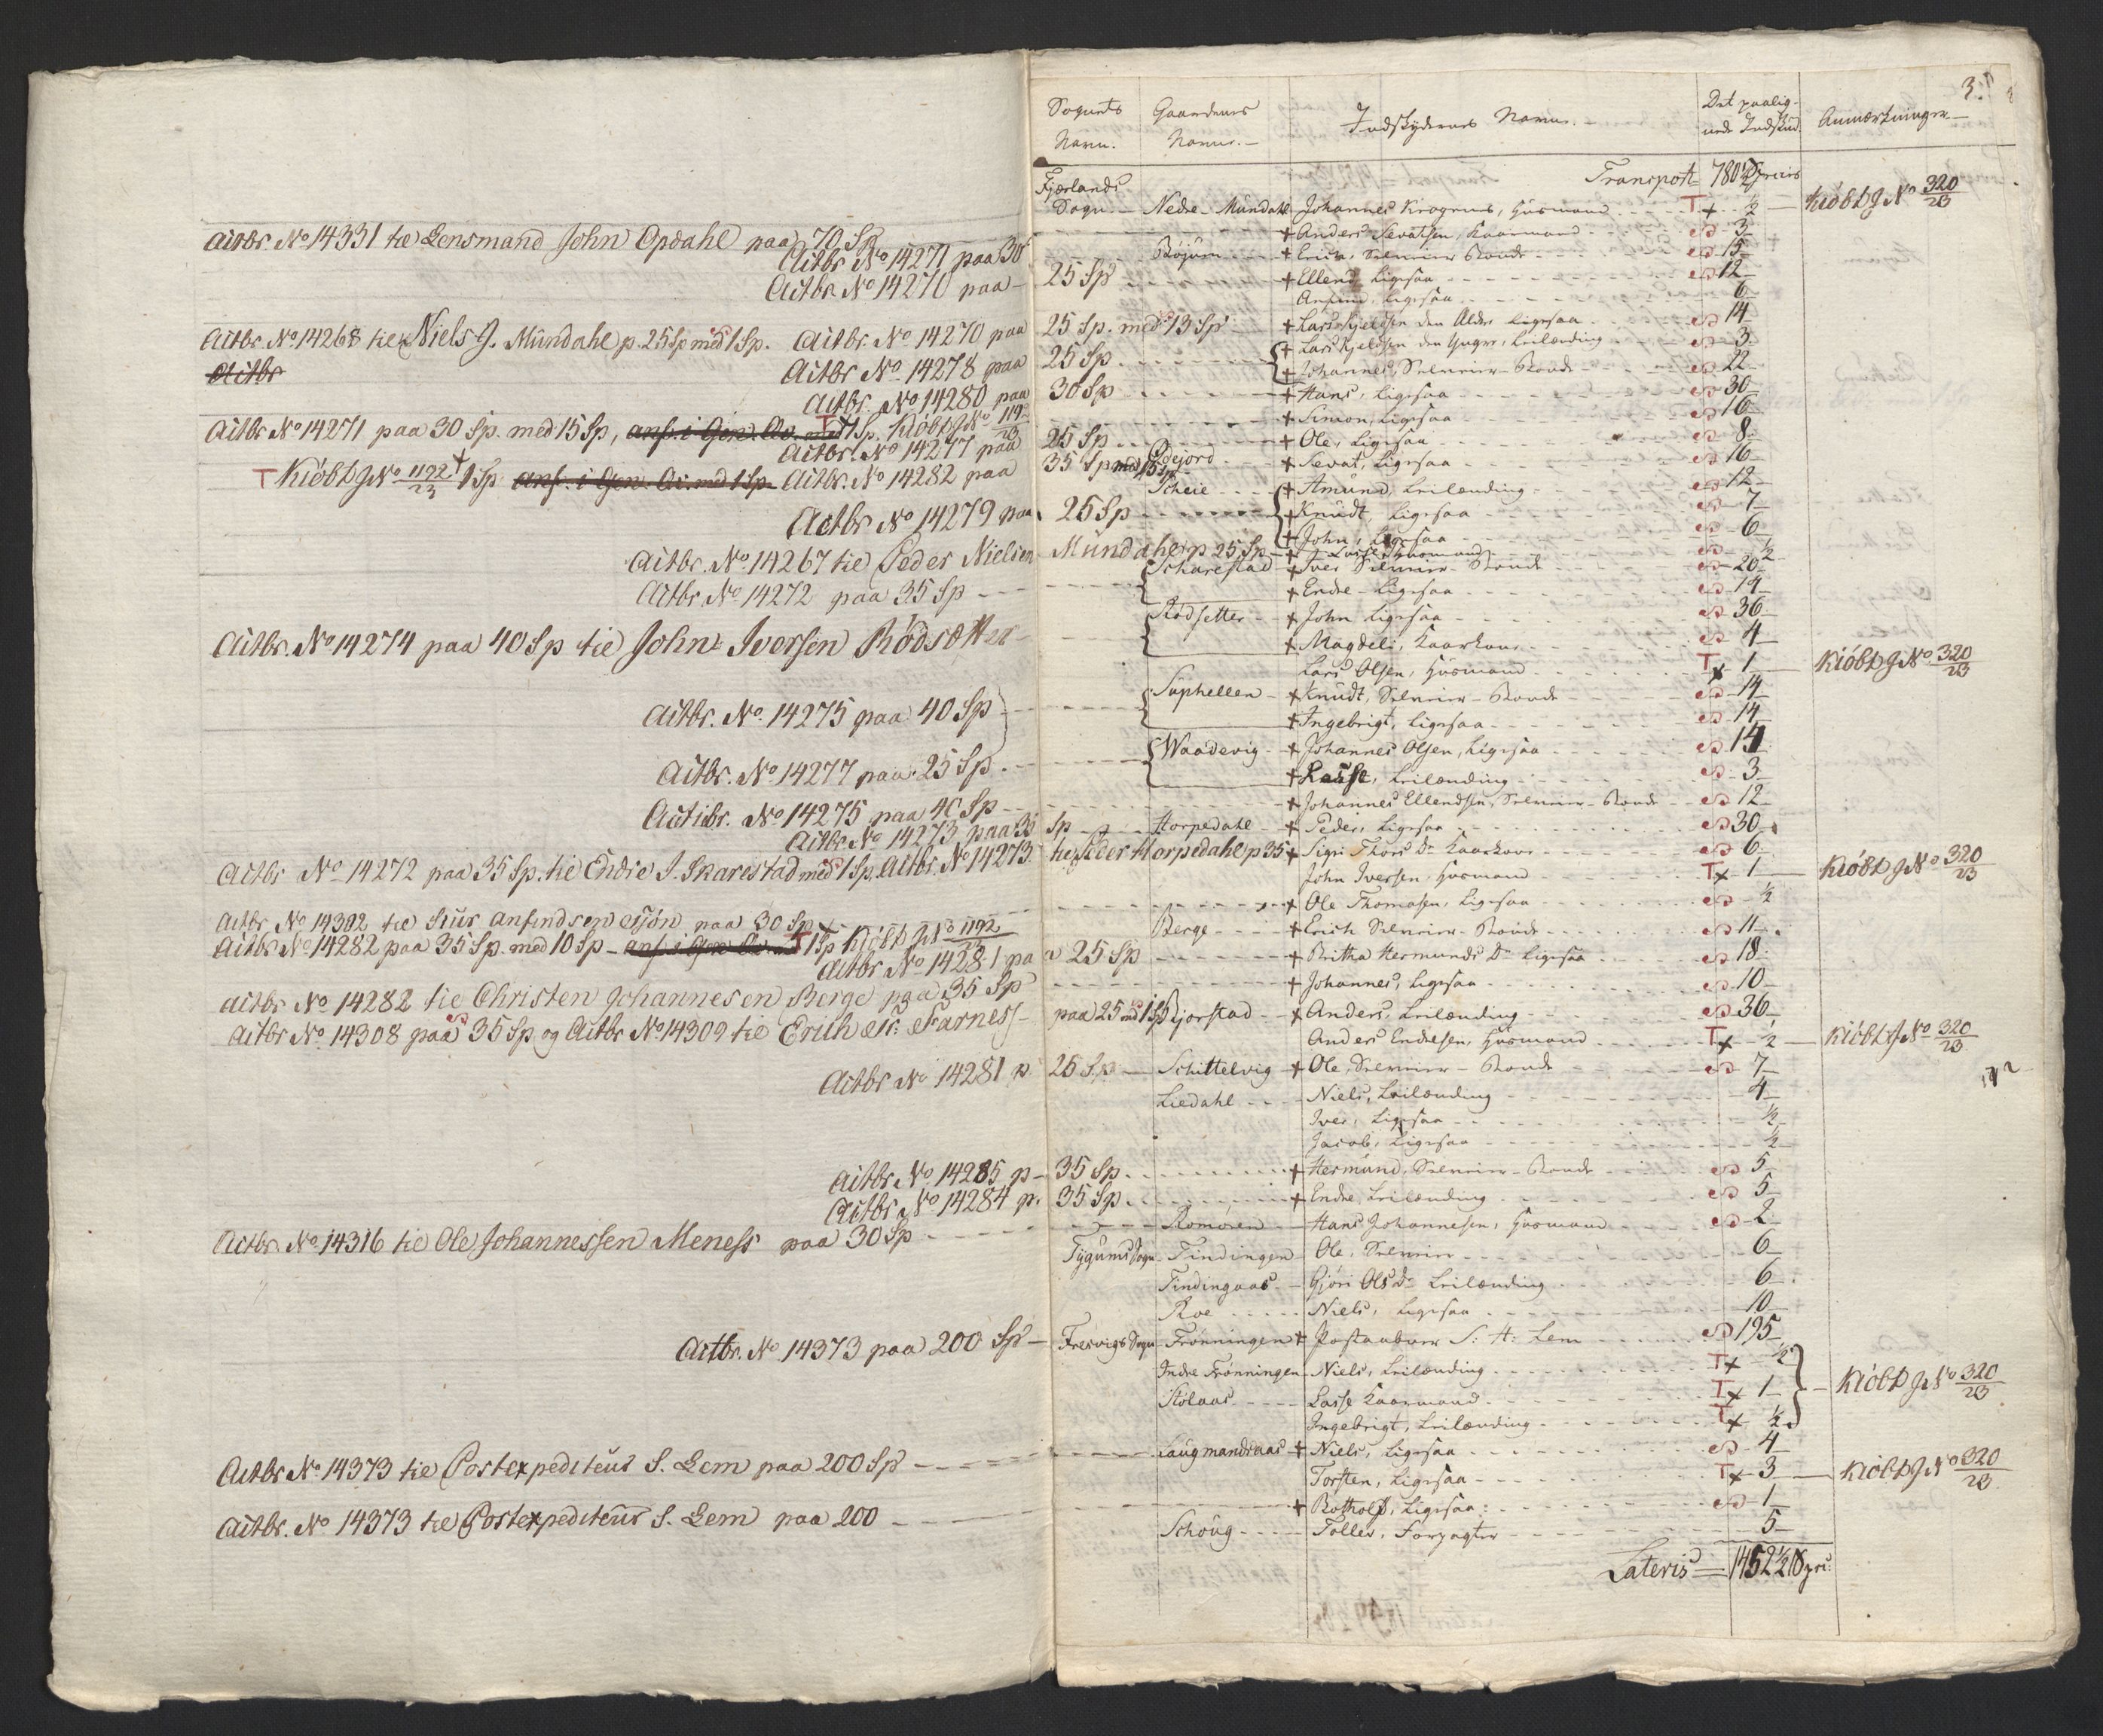 Actbr No 14331 til Lensmand John Opdahl paa 70 Sp
Actbr No 14271 paa 30
Actbr No 14270 paa
Actbr. No 14268 til Niels J. Mundahl p. 25 Sp med 1 Sp. Actbr. No 14270 paa
Actbr
Actbr No 14278 paa
Actbr. No 14280 paa
Actbr No 14271 paa 30 Sp. med 15 Sp, anf. i Gen. Av. med T 1 Sp. Kiöbt J No 1192/23
Actbr. No 14277 paa
T Kiöbt J No 1192/23 1 Sp anf. i Gen. Av. med 1 Sp Actbr. No 14282 paa
Actbr No 14279 paa
Actbr. No 14267 til Peder Nielsen
Actbr No 14272 paa 35 Sp
Actbr. No 14274 paa 40 Sp til John Iversen Rödsætter
Actbr. No 14275 paa 40 Sp
Actbr. No 14277 paa 25 Sp.
Actibr. No 14275 paa 40 Sp
Actbr No 14273 paa 35
Actbr No 14272 paa 35 Sp. til Endre J. Skarestad med 1 Sp, Actbr. No 14273
Actbr No 14302 til Siur Anfindsen paa 30 Sp
Actbr No 14282 paa 35 Sp. med 10 Sp - anf. i Gen Av. T 1 Sp Kiöbt J No 1192/23
Actbr No 14281 pa
Actbr No 14282 til Christen Johannesen Berge paa 35 Sp
Actbr No 14308 paa 35 Sp og Actbr No 14309 til Erich Farness
Actbr No 14281 p
Actbr No 14285 p
Actbr No 14284 p.
Actbr No 14316 til Ole Johannessen Meness paa 30 Sp
Actbr. No 14373 paa 200 Sp
Actbr No 14373 til Postexpediteur S. Lem paa 200 Sp
Actbr. No 14373 til Postexpediteur S. Lem paa 200
3.
Sognets Navn. Gaardenes Navne. Indskydernes Navne. Det paalignede Indskud. Anmærkninger
Transport 780½ Specier
Fjærlands Sogn. Nedre Mundahl Johannes Krogenes, Huusmand T x ½ Kiöbt J No 320/23
+ Anders Sevatsen, Kaarmand 3
Böjum + Erich, Selveier Bonde 15
25 Sp + Ellend Ligesaa 12
Anfind, Ligesaa 6
25 Sp. med 13 Sp + Lars Kjeldsen den Ældre Ligesaa 14
+ Lars Kjeldsen den Yngre, Leilænding 3
25 Sp. + Johannes, Selveier Bonde 22
30 Sp + Hans, Ligesaa 30
+ Simon, Ligesaa 16
25 Sp + Ole, Ligesaa 8
35 Sp med 15 Sp Ödejord + Sevat, Ligesaa 16
Scheie + Amund, Leilænding 12
25 Sp + Knudt, Ligesaa 7
+ John, Ligesaa 6
Mundahl p 25 Sp + Lasse Huusmand ½
Scharestad + Iver Selveier Bonde 20
+ Endre Ligesaa 14
Rödsetter + John Ligesaa 36
+ Magdeli, Kaarkone 4
Lars Olsen, Huusmand T x 1 Kiöbt J No 320/23
Suphellen + Knudt, Selveier Bonde 14
+ Ingebrigt, Ligesaa 14
Waadevig + Johannes Olsen, Ligesaa 14
+ Lasse, Leilænding 3
+ Johannes Ellendsen, Selveier Bonde 12
Sp Horpedahl + Peder, Ligesaa 30
til Peder Horpedahl p 35 + Sigri Thors Dr Kaarkone 6
John Iversen, Huusmand T x 1 Kiöbt J No 320/23
+ Ole Thomasen, Ligesaa ½
Berge + Erich Selveier Bonde 11
a 25 Sp + Britha Hermunds Dr Ligesaa 18
+ Johannes, Ligesaa 10
paa 25 med 1 Sp Bjorstad + Anders, Leilænding 36
Anders Endresen, Huusmand T x ½ Kiöbt J No 320/23
25 Sp Schittelvig + Ole, Selveier Bonde 7
Liedahl Niels, Leilænding 4
Iver, Ligesaa ½
Jacob, Ligesaa ½
35 Sp. + Hermund, Selveier Bonde 5
35 Sp. + Endre Leilænding 5
Romören Hans Johannesen, Huusmand 2
Tygums Sogn Findingen Ole, Selveier 6
Findingaas Gjöri Ols Dr Leilænding 6
Roe Niels, Ligesaa 10
Fresvigs Sogn Frönningen + Postaabner S: H: Lem 195
Indre Frönningen Niels, Leilænding T x ½
Stölaas Lasse Kaarmand T x 1 Kiöbt J No 320/23
Ingebrigt, Leilænding T x ½
Laugmandsaas + Niels, Ligesaa 4
Torsten, Ligesaa T x 3 Kiöbt J No 320/23
+ Botholf, Ligesaa 1
Schoug Tolles, Forpagter 5
Lateris 1452½ Spec: